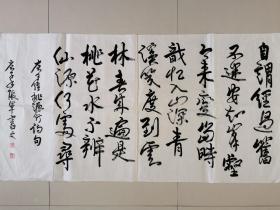 自謂經過舊
不迷安知峰壑
今来變當時
記入山深青
溪幾度到雲
林春来遍是
桃花水不辨
仙源何處尋
唐王維桃源行詩句
庚子